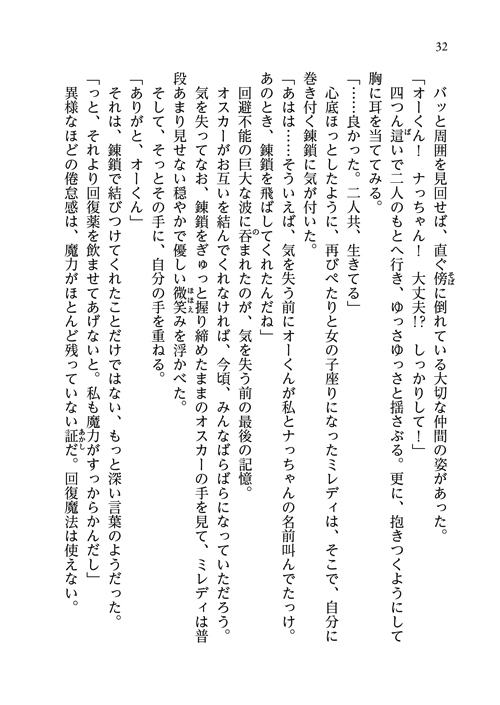 32
バッと周囲を見回せば、直ぐ傍に倒れている大切な仲間の姿があった。
「オーくん！　ナっちゃん！　大丈夫!?　しっかりして！」
四つん這いで二人のもとへ行き、ゆっさゆっさと揺さぶる。更に、抱きつくようにして
胸に耳を当ててみる。
「……良かった。二人共、生きてる」
心底ほっとしたように、再びぺたりと女の子座りになったミレディは、そこで、自分に
巻き付く錬鎖に気が付いた。
「あはは……そういえば、気を失う前にオーくんが私とナっちゃんの名前叫んでたっけ。
あのとき、錬鎖を飛ばしてくれたんだね」
回避不能の巨大な波に呑まれたのが、気を失う前の最後の記憶。
オスカーがお互いを結んでくれなければ、今頃、みんなばらばらになっていただろう。
気を失ってなお、錬鎖をぎゅっと握り締めたままのオスカーの手を見て、ミレディは普
段あまり見せない穏やかで優しい微笑みを浮かべた。
そして、そっとその手に、自分の手を重ねる。
「ありがと、オーくん」
それは、錬鎖で結びつけてくれたことだけではない、もっと深い言葉のようだった。
「っと、それより回復薬を飲ませてあげないと。私も魔力がすっからかんだし」
異様なほどの倦怠感は、魔力がほとんど残っていない証だ。回復魔法は使えない。